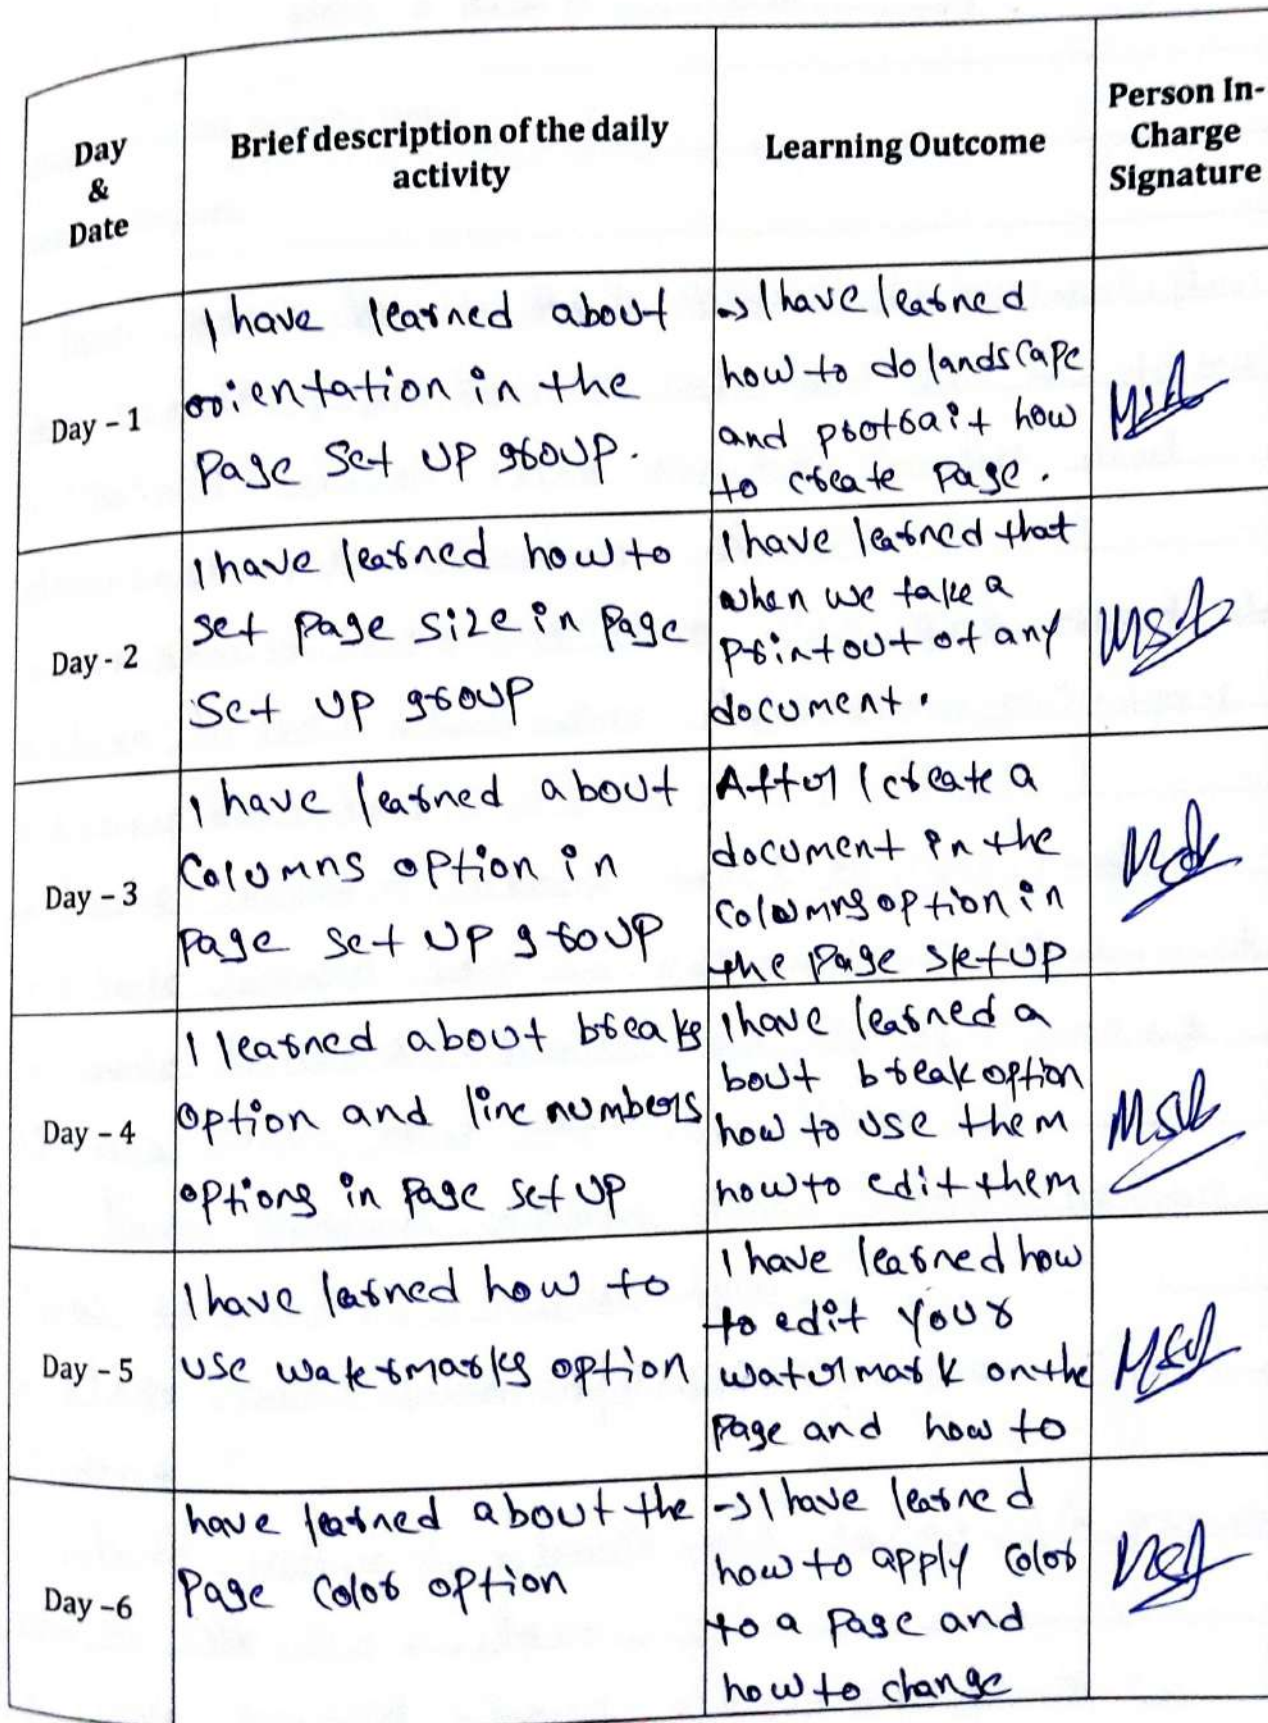 Day
&
Date
Brief description of the daily
activity
Learning Outcome
Person In-
Charge
Signature
Day - 1
I have learned about
orientation in the
Page Set UP group.
→ I have learned
how to do landscape
and protrait how
to create Page.
Day - 2
I have learned how to
set Page size in Page
Set UP group
I have learned that
when we take a
printout of any
document.
Day - 3
I have learned about
Columns option in
Page set UP group
After I create a
document in the
Columns option in
the Page setUP
Day - 4
I learned about breaks
option and line numbers
options in Page set UP
I have learned a
bout break option
how to use them
how to edit them
Day - 5
I have larned how to
use watermarks option
I have learned how
to edit your
watermark on the
Page and how to
Day -6
have learned about the
Page Color option
→ I have learned
how to apply color
to a Page and
how to change